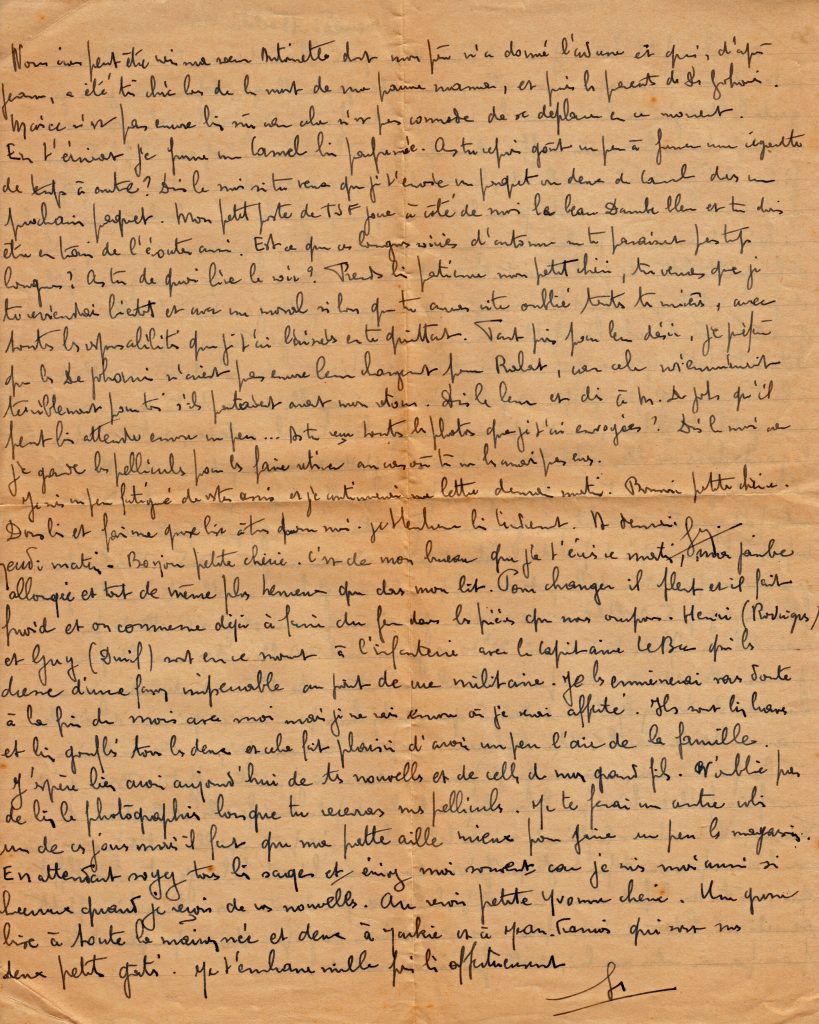 Nous irons peut être voir ma soeur Antoinette dont mon père m'a donné l'adresse et qui, d'après
Jean, a été très chic lors de la mort de ma pauvre maman, et puis les parents de De Johani.
n'est pas encore bien sûr car cela n'est pas commode de se déplacer en ce moment.
En t'écrivant je fume une Camel bien parfumée. As tu repris goût un peu à fumer une cigarette
de temps à autre? Dis le moi si tu veux que je t'envoie un paquet ou deux de Camel dans un
prochain paquet. Mon petit poste de TSF joue à côté de moi le beau Danube bleu et tu dois
être en train de l'écouter aussi. Est ce que ces longues soirées d'automne ne te paraissent pas trop
longues? As tu de quoi lire le soir? Prends bien patience mon petit chéri, tu verras que je
te reviendrai bientôt et avec un moral si bon que tu auras vite oublié toutes tes misères, avec
toutes les responsabilités que je t'ai laissées en te quittant. Tant pis pour leur désir, je préfère
que les De Johani n'aient pas encore leur changement pour Rabat, car cela m'ennuierait
terriblement pour toi s'ils partaient avant mon retour. Dis le leur et dis à M. De Joh qu'il
peut bien attendre encore un peu... As tu reçu toutes les photos que je t'ai envoyées? Dis le moi car
je garde les pellicules pour les faire retirer au cas où tu ne les aurais pas eues.
Je suis un peu fatigué de rester assis et je continuerai ma lettre demain matin. Bonsoir petite chérie.
Dors bien et fais une grosse bise à tes de moi. Je t'embrasse bien tendrement. A demain
Jeudi matin - Bonjour petite chérie. C'est de mon bureau que je t'écris ce matin, ma jambe
allongée et tout de même plus heureux que dans mon lit. Pour changer il pleut et il fait
froid et on commence déjà à faire du feu dans les pièces que nous occupons. Henri (Rodrigues)
et Guy (Dunil) sont en ce moment à l'infanterie avec le Capitaine LeBer qui les
dresse d'une façon impeccable au point de vue militaire. Je les emmènerai sans doute
à la fin du mois avec moi mais je ne sais encore où je serai affecté. Ils sont bien braves
et bien gonflés tous les deux et cela fait plaisir d'avoir un peu l'air de la famille.
J'espère bien avoir aujourd'hui de tes nouvelles et de celles de mes grands fils. N'oublie pas
de bien le photographier lorsque tu recevras mes pellicules. Je te ferai un autre colis
un de ces jours mais il faut que ma patte aille mieux pour faire un peu les magasins.
En attendant soyez tous bien sages et écrivez moi souvent car je suis moi aussi si
heureux quand je reçois de vos nouvelles. Au revoir petite Yvonne chérie. Une grosse
bise à toute la maisonnée et deux à Jackie et à Jean-François qui sont mes
deux petits gâtés. Je t'embrasse mille fois bien affectueusement